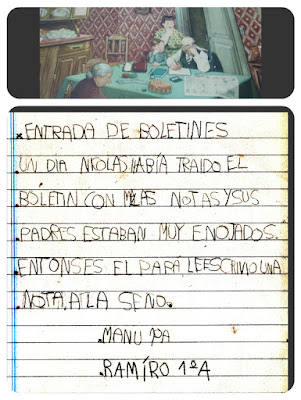 .ENTRADA DE BOLETINES
UN DIA NICOLAS HABÍA TRAIDO EL
BOLETIN CON MALAS NOTAS Y SUS
PADRES ESTABAN MUY ENOJADOS.
ENTONSES EL PAPÁ LE ESCRIVIO UNA
NOTA, A LA SEÑO.
.MANU 1ºA
.RAMÍRO 1ºA